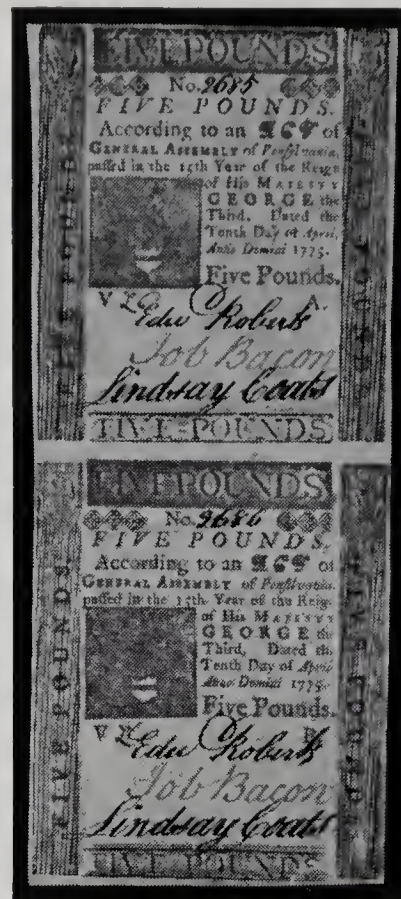 FIVE POUNDS
No. 9685
FIVE POUNDS.
According to an ACT of
GENERAL ASSEMBLY of Pensylvania,
passed in the 15th Year of the Reign
of His MAJESTY
GEORGE the
Third. Dated the
Tenth Day of April,
Anno Domini 1775.
Five Pounds.
V A.
Edw Roberts
Job Bacon
Lindsay Coats
FIVE POUNDS
FIVE POUNDS
FIVE POUNDS
FIVE POUNDS
No. 9686
FIVE POUNDS,
According to an ACT of
GENERAL ASSEMBLY of Pensylvania,
passed in the 15th Year of the Reign
of His MAJESTY
GEORGE the
Third, Dated the
Tenth Day of April
Anno Domini 1775.
Five Pounds.
V
Edw Roberts
Job Bacon
Lindsay Coats
FIVE POUNDS
FIVE POUNDS
FIVE POUNDS